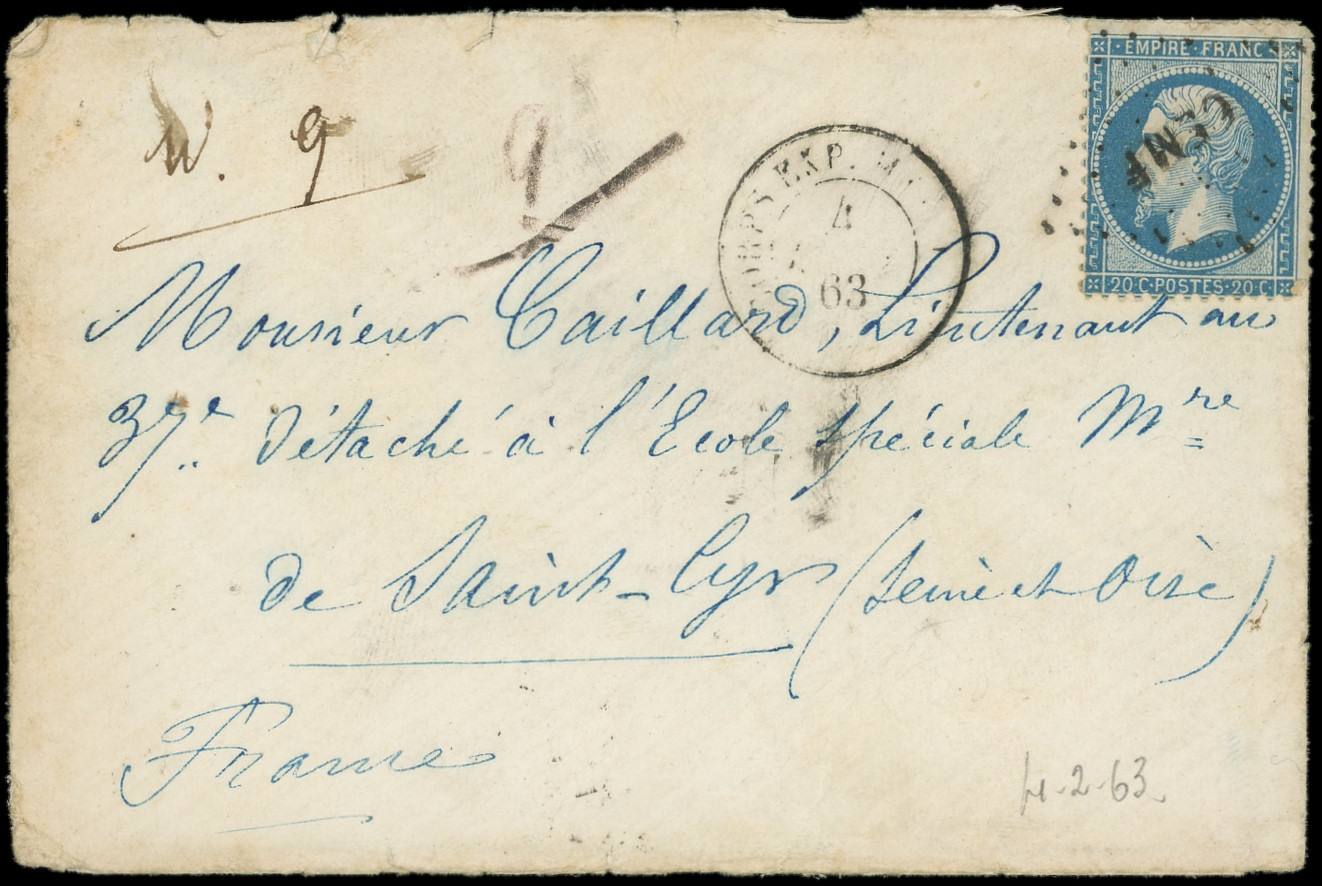 EMPIRE · FRANC
N. 9
9
CORPS EXP. M
4
63
20 C · POSTES · 20 C
Monsieur Caillard, Lieutenant au
37e Détaché à l'Ecole spéciale Mre
de Saint-Cyr (Seine et Oise)
France
4-2-63